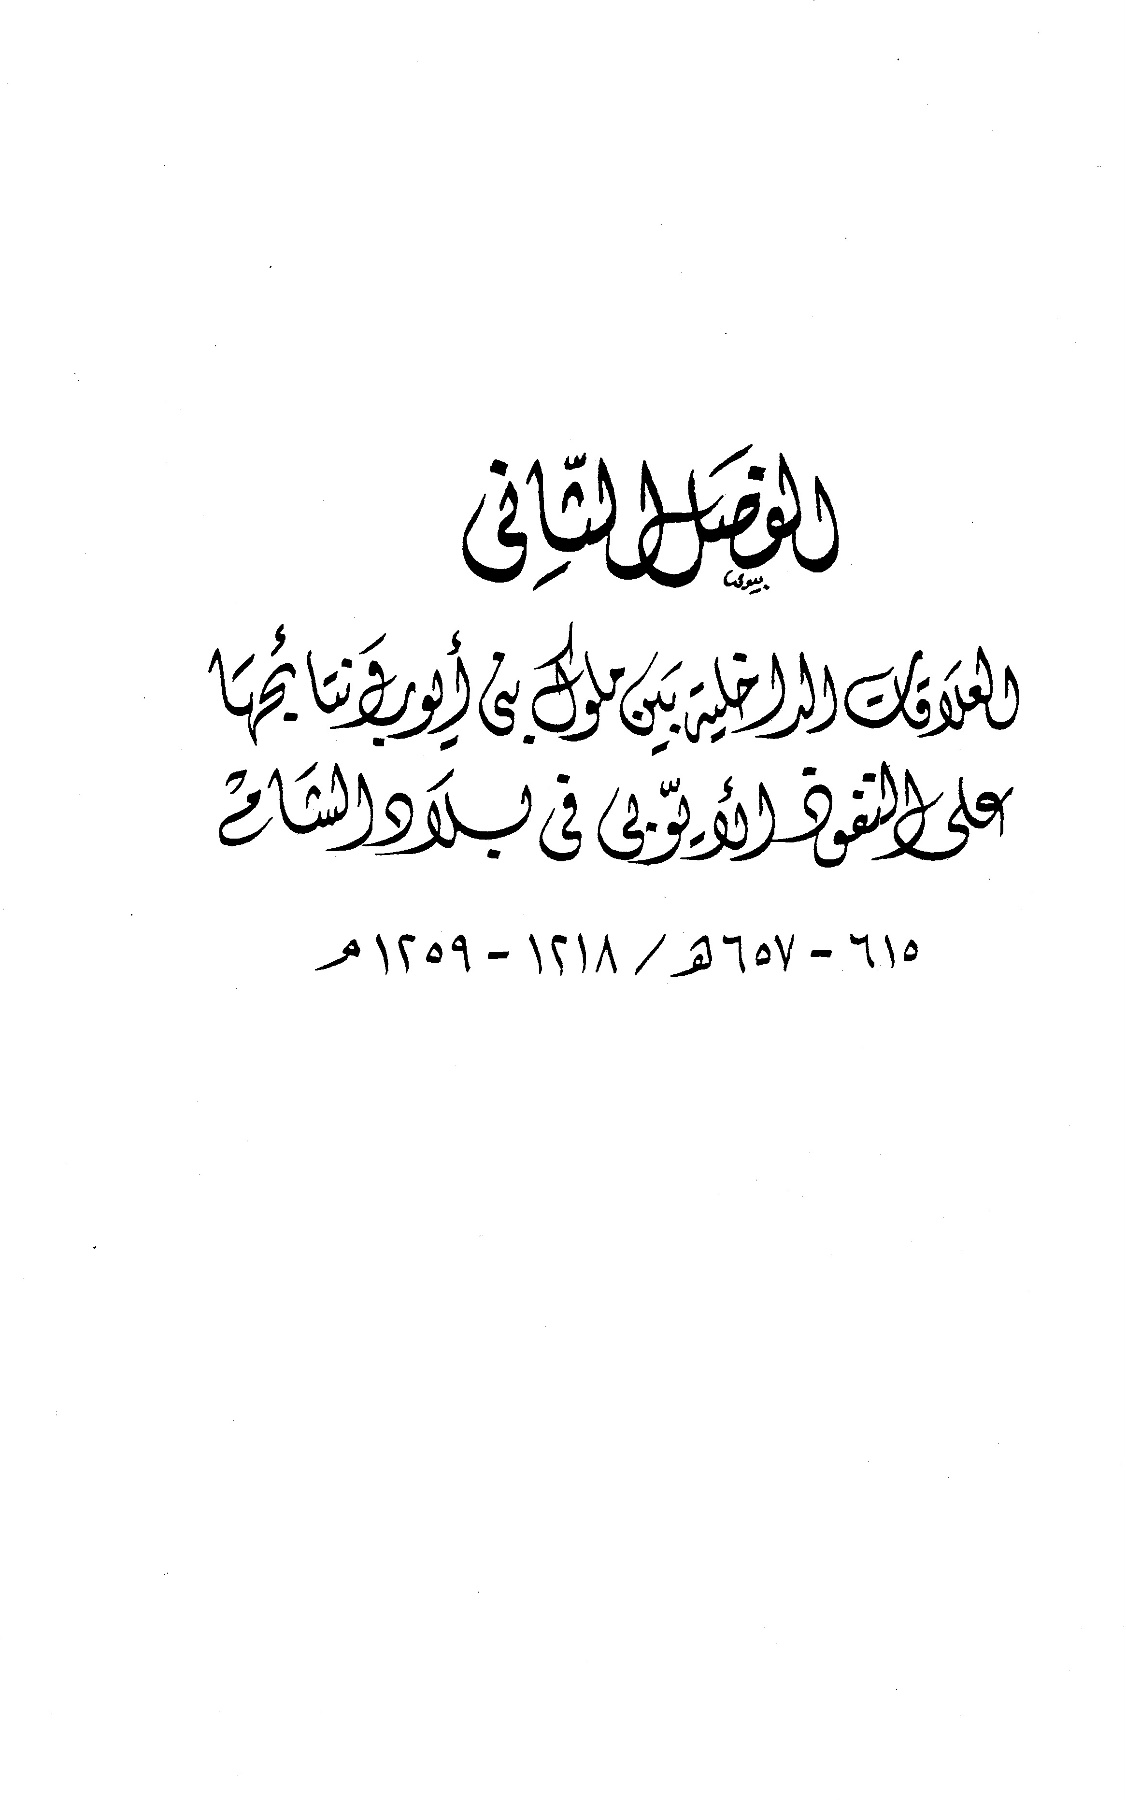 الفصل الثاني
العلاقات الداخلية بين ملوك بني أيوب ونتائجها
على النفوذ الأيوبي في بلاد الشام
٦١٥ - ٦٥٧ هـ / ١٢١٨ - ١٢٥٩ م